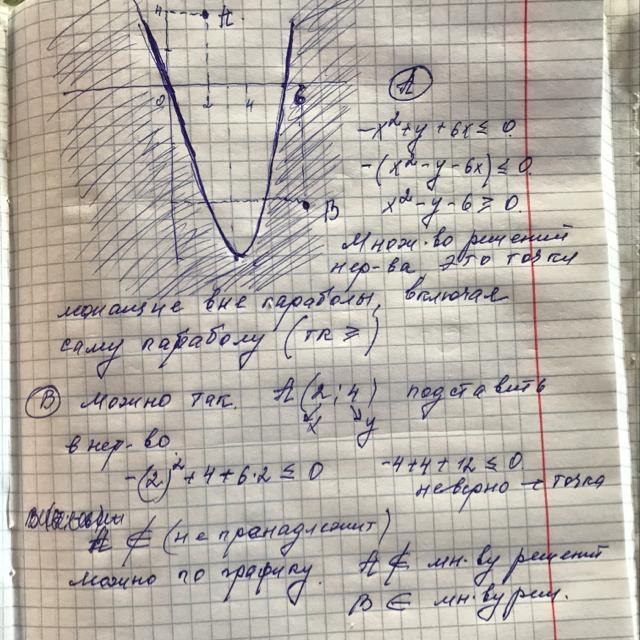 4 A.
0 2 4 6
B
А
-x²+y+6x≤0.
-(x²-y-6x)≤0.
x²-y-6≥0.
Множ-во решений
нер-ва это точки
вне параболы, включая
саму параболу (тк ≥)
В можно так. А(2;4) подставить
x y
в нер-во.
-(2)²+4+6·2≤0 -4+4+12≤0.
неверно точка
А ∉ (не принадлежит)
можно по графику. А ∉ мн-ву решений
В ∈ мн-ву реш.